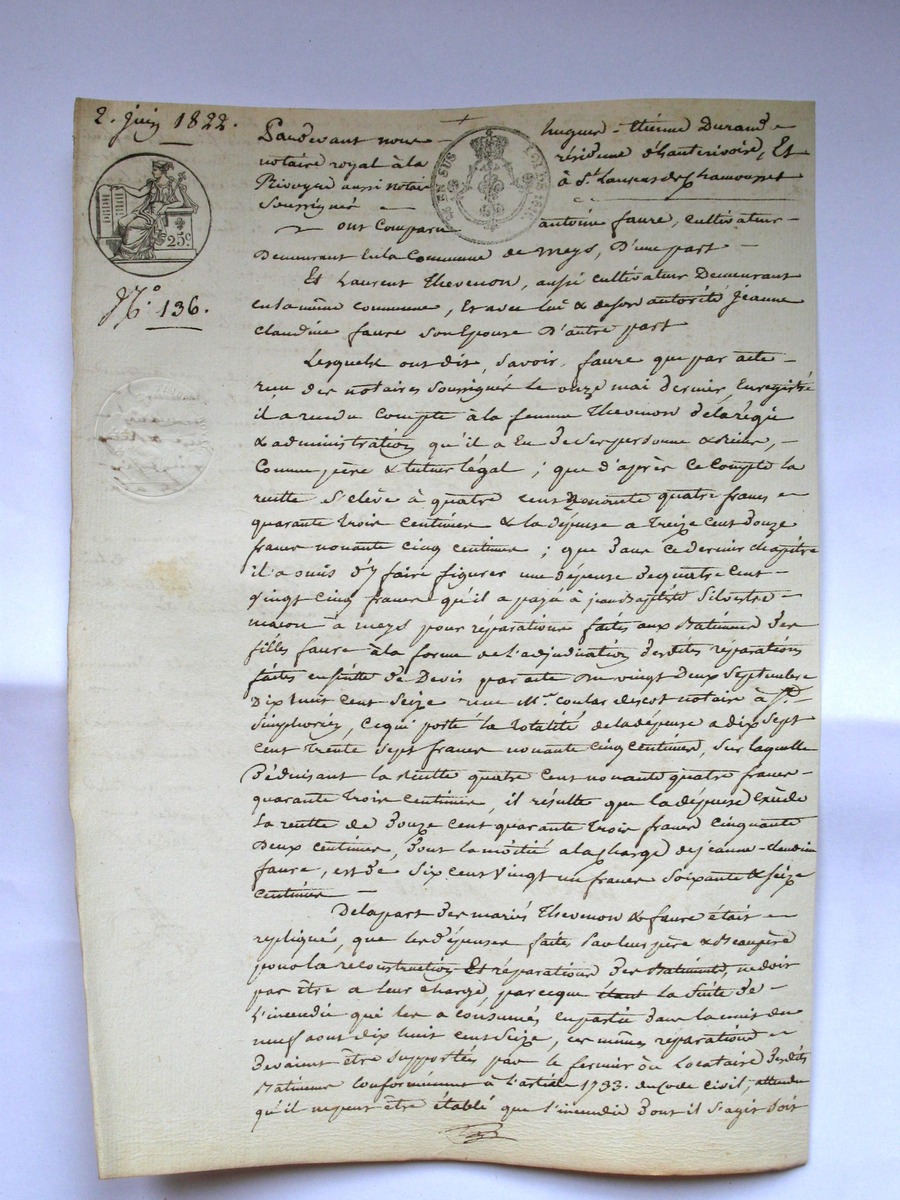 2. juin 1822.
Pardevant nous hugues-étienne Durand
notaire royal à la résidence d'hauterivoire, Et
aussi notaire à St. Laurent de Chamousset
Soussignés
25c
ont Comparu antoine faure, cultivateur
Demeurant En la Commune de meys, D'une part
N.o 136.
Et Laurent Thevenon, aussi cultivateur Demeurant
en la même commune, Et avec lui & de son autorité jeanne
claudine faure Son Epouse D'autre part
Lesquels ont dit, Savoir, faure que par acte
reçu des notaires soussignés le onze mai dernier, Enregistré
il a rendu Compte à la femme Thevenon de la régie
& administration qu'il a Eu de Ses personne & biens,
Comme père & tuteur légal ; que d'après Ce Compte la
recette S'élève à quatre cent nonante quatre francs
quarante trois Centimes & la dépense a treize cent Douze
francs nonante cinq centimes ; que dans Ce dernier chapitre
il a omis d'y faire figurer une dépense de quatre Cent
Vingt Cinq francs qu'il a payé à jean Baptiste Silvestre
macon à meys pour réparations faites aux Batimens des
filles faure à la forme de l'adjudication desdites réparations
faites ensuitte de Devis par acte du vingt Deux Septembre
Dix huit cent Seize reçu Mr. notaire à St.
Simphorien, Ce qui porte la totalité de la dépense a dix Sept
cent trente Sept francs nonante cinq Centimes, Sur laquelle
Déduisant la recette quatre Cent nonante quatre francs
quarante trois centimes, il résulte que la dépense Excède
la recette de Douze cent quarante trois francs cinquante
Deux centimes, Dont la moitié a la charge de jeanne-claudine
faure, est de Six cent Vingt un francs Soixante & Seize
centimes
De la part des mariés Thevenon & faure était
repliqué, que les dépenses faites par leur père & Beaupère
pour la reconstruction Et réparations des Batimens, ne doit
pas être a leur charge, parceque étant la Suite de
l'incendie qui les a consumés en partie dans le mois de
neuf aout dix huit cent Seize, ces mêmes réparations
devaient être Supportées par le fermier ou locataire desdits
Batimens Conformément à l'article 1733. du Code Civil, attendu
qu'il ne peut être établi que l'incendie Dont il S'agit Soit